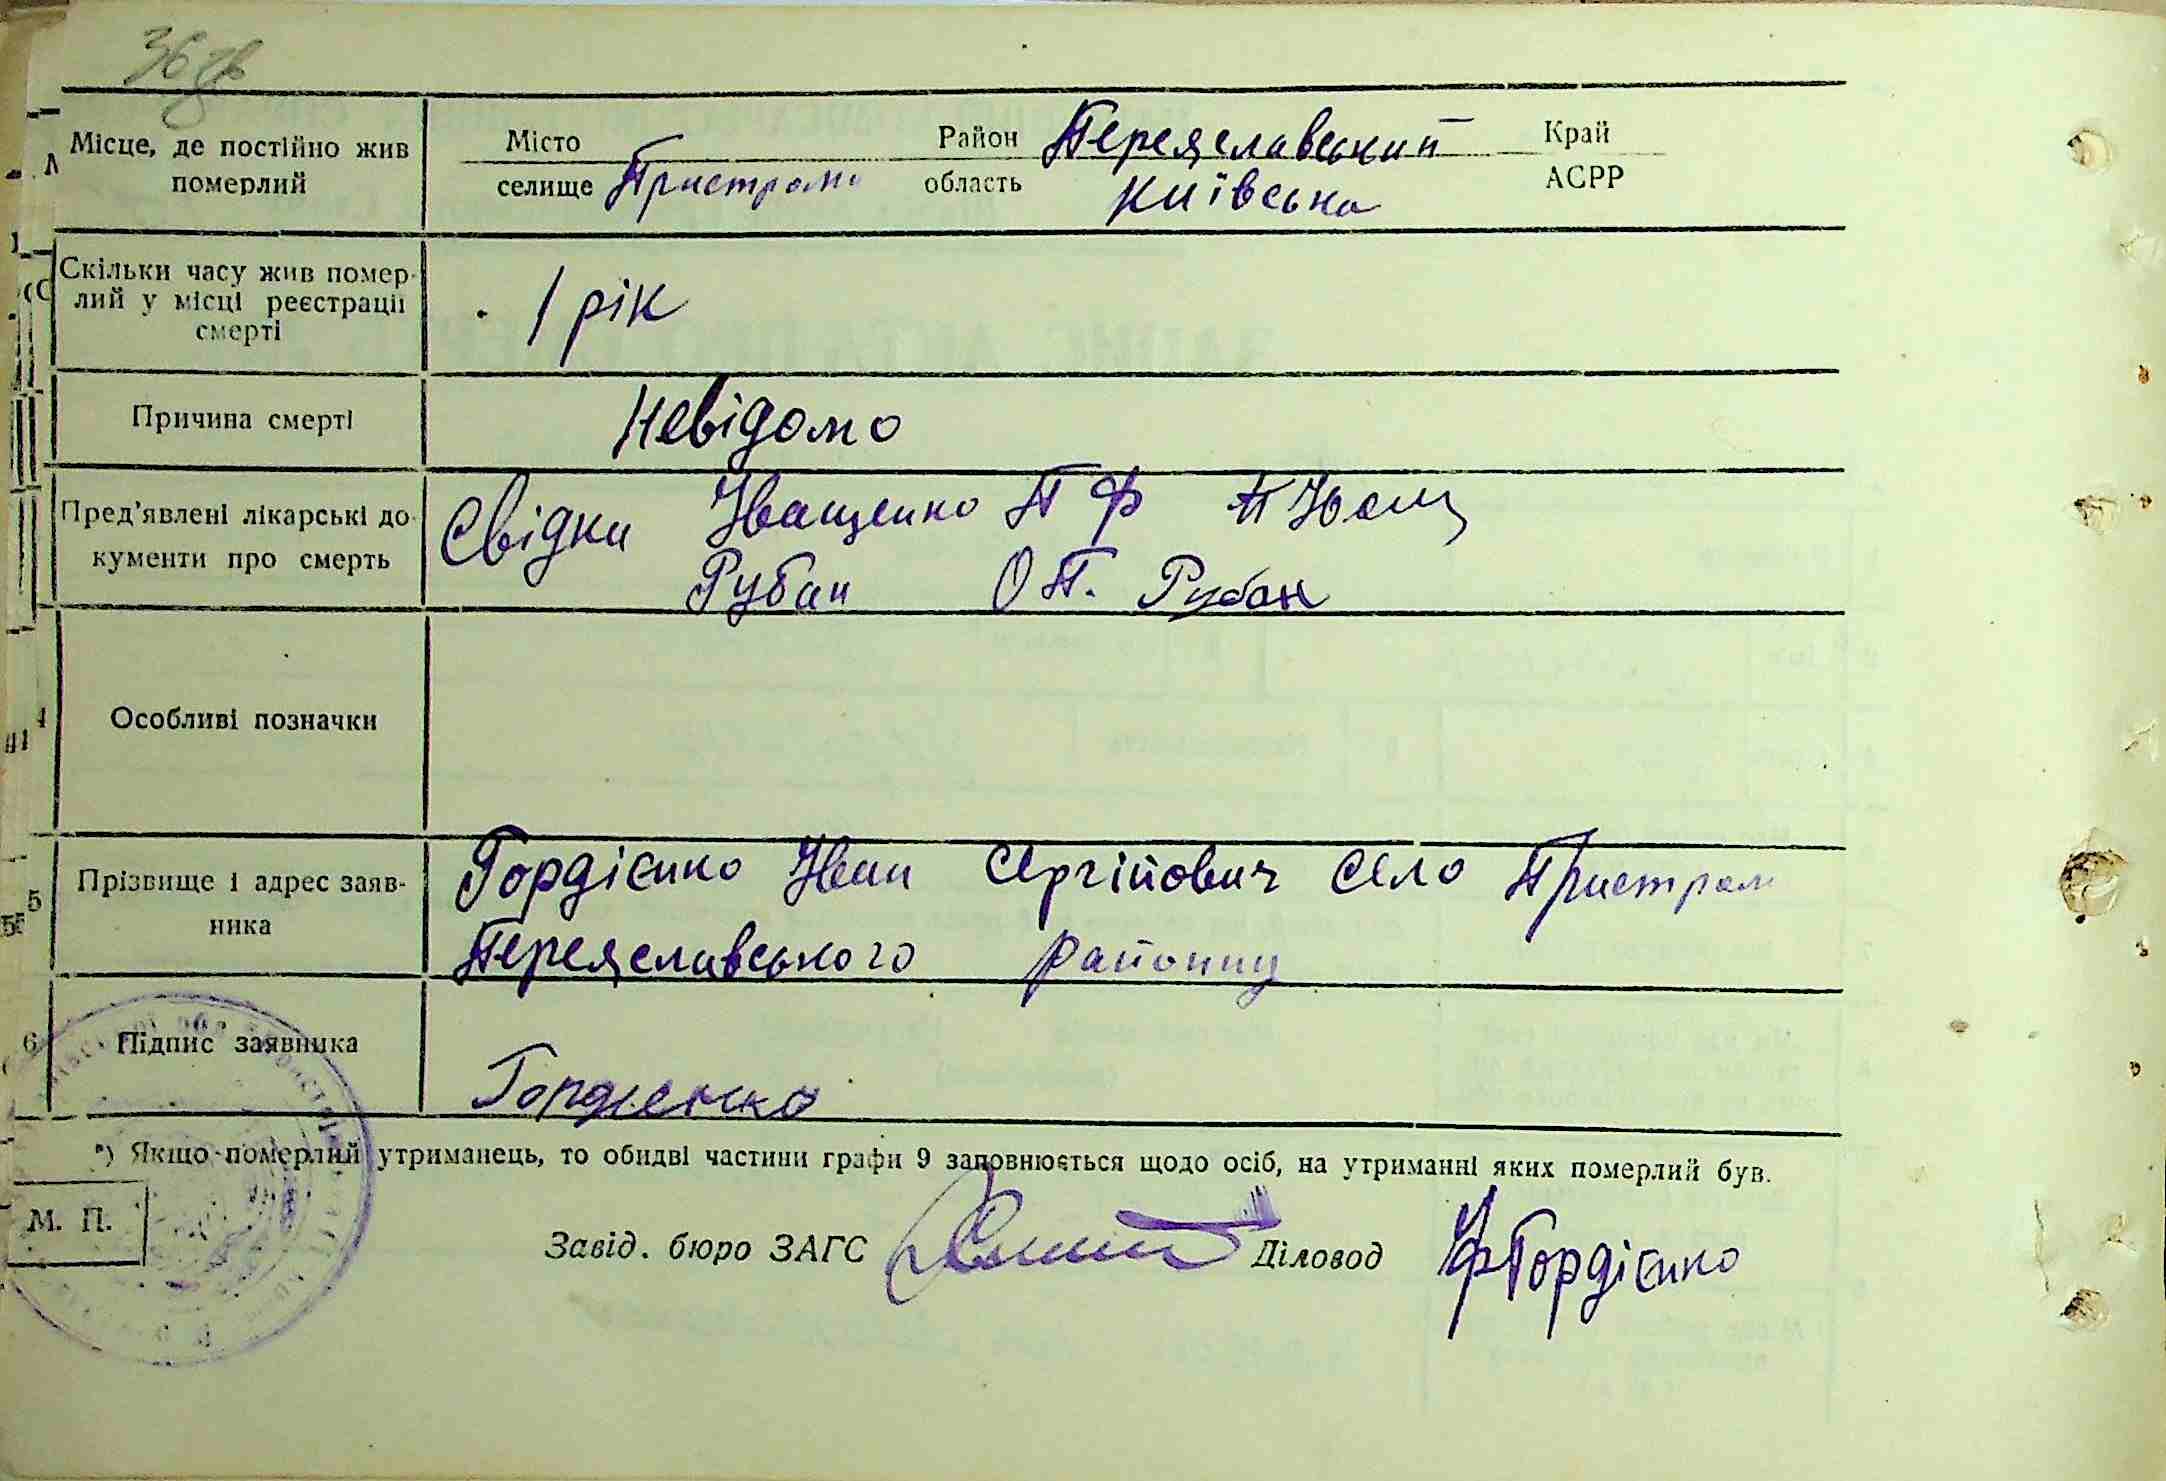 36 зв
Місце, де постійно жив
померлий
Місто
селище Пристроми
Район Переяславський
область Київська
Край
АСРР
Скільки часу жив помер-
лий у місці реєстрації
смерті
1 рік
Причина смерті
Невідомо
Пред'явлені лікарські до-
кументи про смерть
Свідки Іващенко П Ф
Рубан О П. Рубан
Особливі позначки
Прізвище і адрес заяв-
ника
Гордієнко Іван Сергійович село Пристром
Переяславського району
Підпис заявника
Гордиенко
*) Якщо померлий утриманець, то обидві частини графи 9 заповнюється щодо осіб, на утриманні яких померлий був.
М. П.
Завід. бюро ЗАГС
Діловод Гордієнко